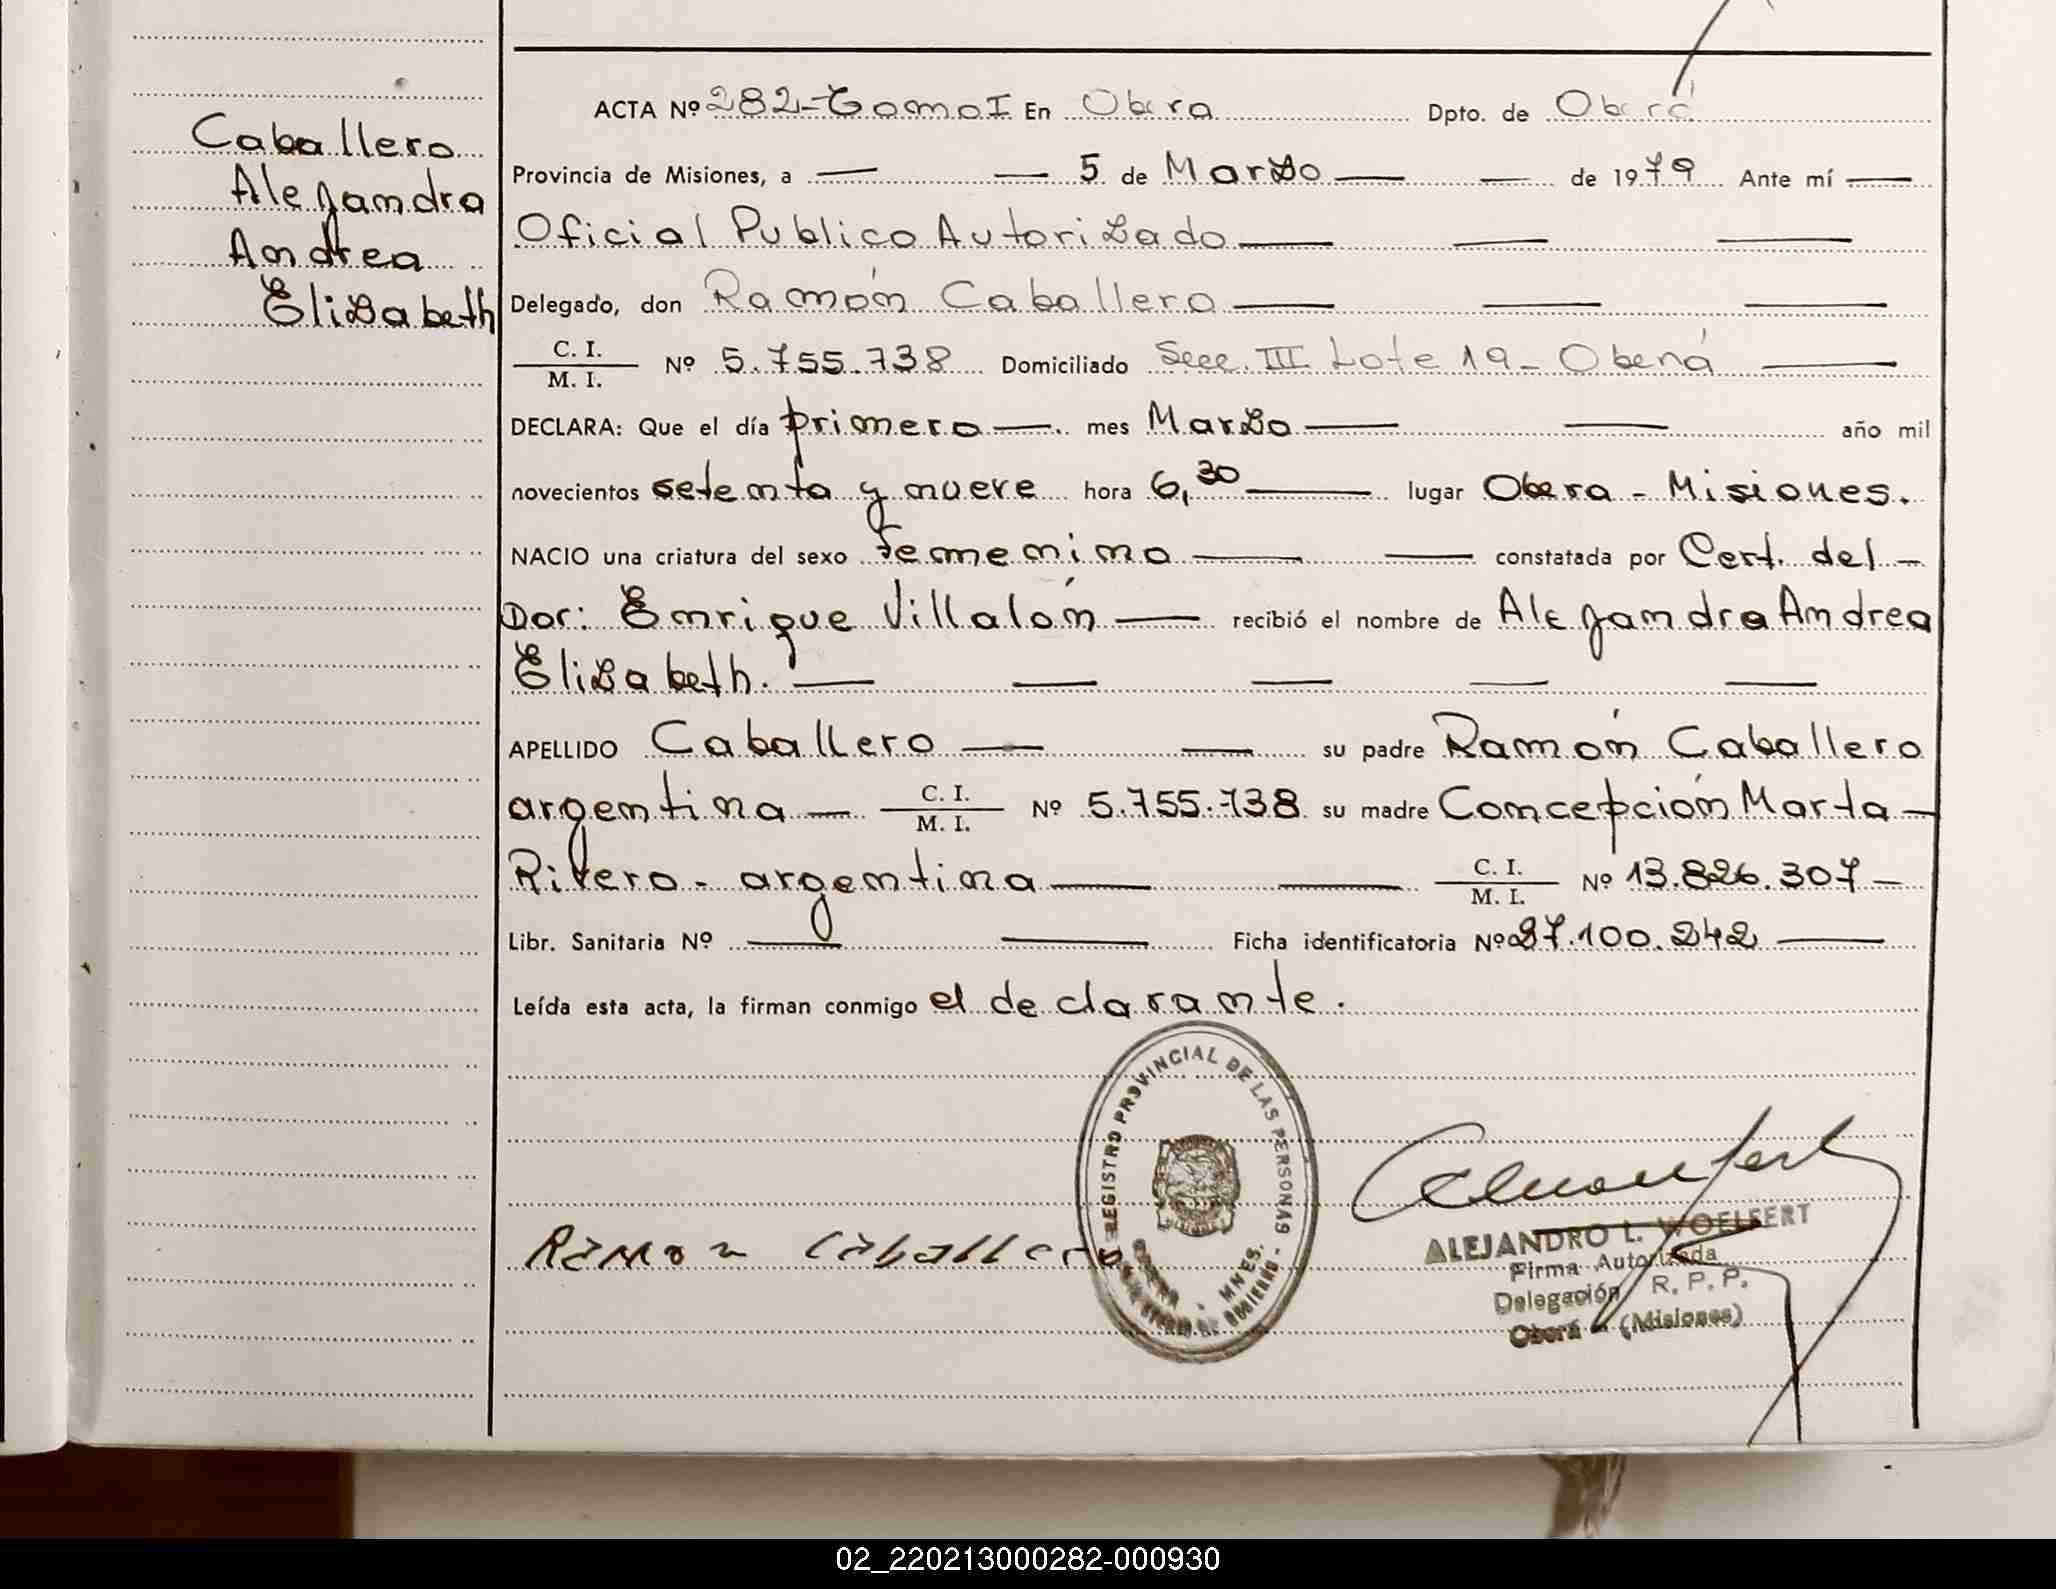 Caballero
Alejandra
Andrea
Elizabeth
ACTA Nº 282-Tomo I En Obera Dpto. de Oberá
Provincia de Misiones, a — — 5 de Marzo — — de 1979 Ante mí —
Oficial Publico Autorizado — — —
Delegado, don Ramón Caballero — — —
C. I.
M. I.
Nº 5.755.738 Domiciliado Secc. III Lote 19 - Oberá —
DECLARA: Que el día primero — mes Marzo — — año mil
novecientos setenta y nueve hora 6,30 — lugar Obera - Misiones.
NACIO una criatura del sexo femenino — — constatada por Cert. del —
Dor: Enrique Villalón — recibió el nombre de Alejandra Andrea
Elizabeth. — — — — —
APELLIDO Caballero — — su padre Ramón Caballero
argentina — C. I. Nº 5.755.738 su madre Concepción Marta —
M. I.
Rivero - argentina — — C. I. Nº 13.826.307 —
M. I.
Libr. Sanitaria Nº — — Ficha identificatoria Nº 27.100.242 —
Leída esta acta, la firman conmigo el declarante.
REGISTRO PROVINCIAL DE LAS PERSONAS
MNES.
Ramon Caballero
ALEJANDRO L. WOELFERT
Firma Autorizada
Delegación R. P. P.
Oberá - (Misiones)
02_220213000282-000930